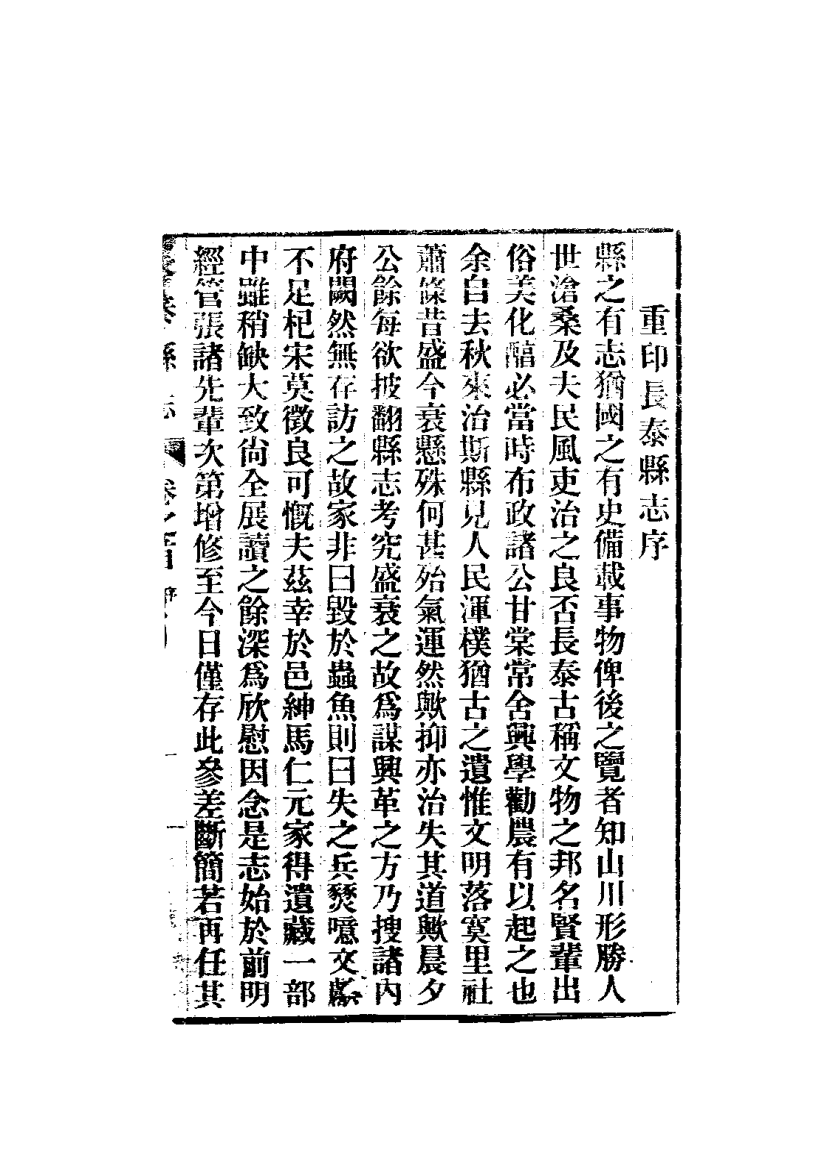 重印長泰縣志序
縣之有志猶國之有史備載事物俾後之覽者知山川形勝人
世滄桑及夫民風吏治之良否長泰古稱文物之邦名賢輩出
俗美化醕必當時布政諸公甘棠常舍興學勸農有以起之也
余自去秋來治斯縣見人民渾樸猶古之遺惟文明落寞里社
蕭條昔盛今衰懸殊何甚殆氣運然歟抑亦治失其道歟晨夕
公餘每欲披翻縣志考究盛衰之故爲謀興革之方乃搜諸內
府闕然無存訪之故家非曰毀於蟲魚則曰失之兵燹噫文獻
不足杞宋莫徵良可慨夫茲幸於邑紳馬仁元家得遺藏一部
中雖稍缺大致尙全展讀之餘深爲欣慰因念是志始於前明
經管張諸先輩次第增修至今日僅存此參差斷簡若再任其
長泰縣志 卷之首 序 一